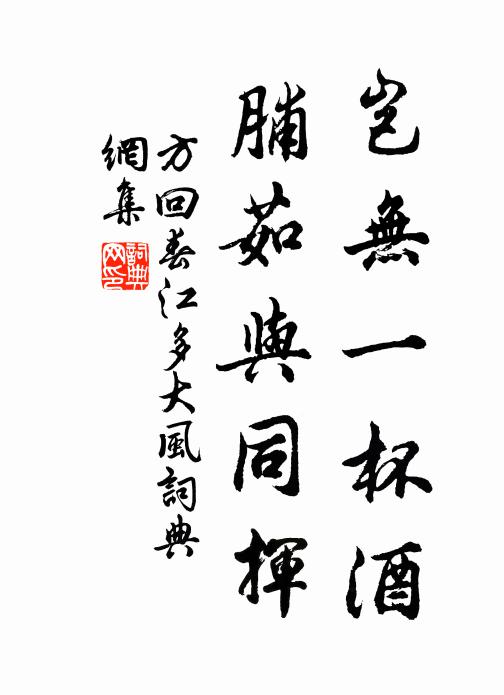 豈無一杯酒
脯茹與同揮
方回春江多大風詞典
網集
詞典
网印